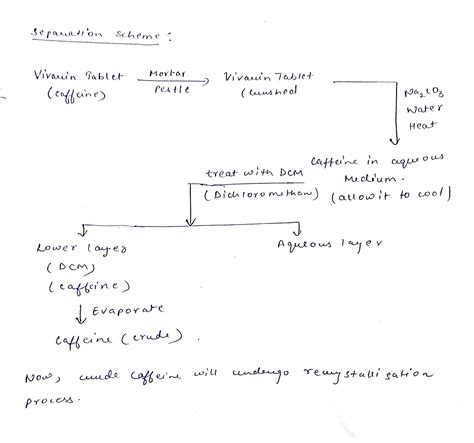 Separation Scheme :
Vivarin Tablet
(caffeine)
Mortar
Pestle
Vivarin Tablet
(crushed
Na2CO3
Water
Heat
Caffeine in aqueous
Medium.
(allow it to cool)
treat with DCM
(Dichloromethan)
Lower layer
(DCM)
(caffeine)
Aqueous layer
Evaporate
Caffeine (crude) .
Now, crude caffeine will undergo recrystallisation
process.